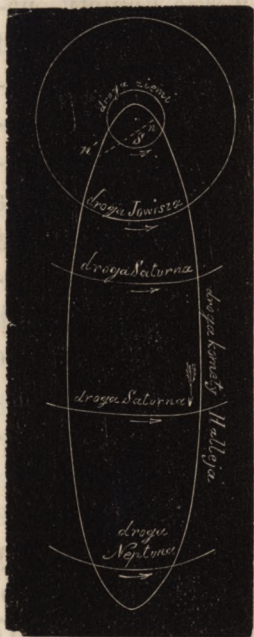 droga ziemi
n
S
n'
droga Jowisza
droga Saturna
droga komety Halleja.
droga Saturna
droga
Neptuna